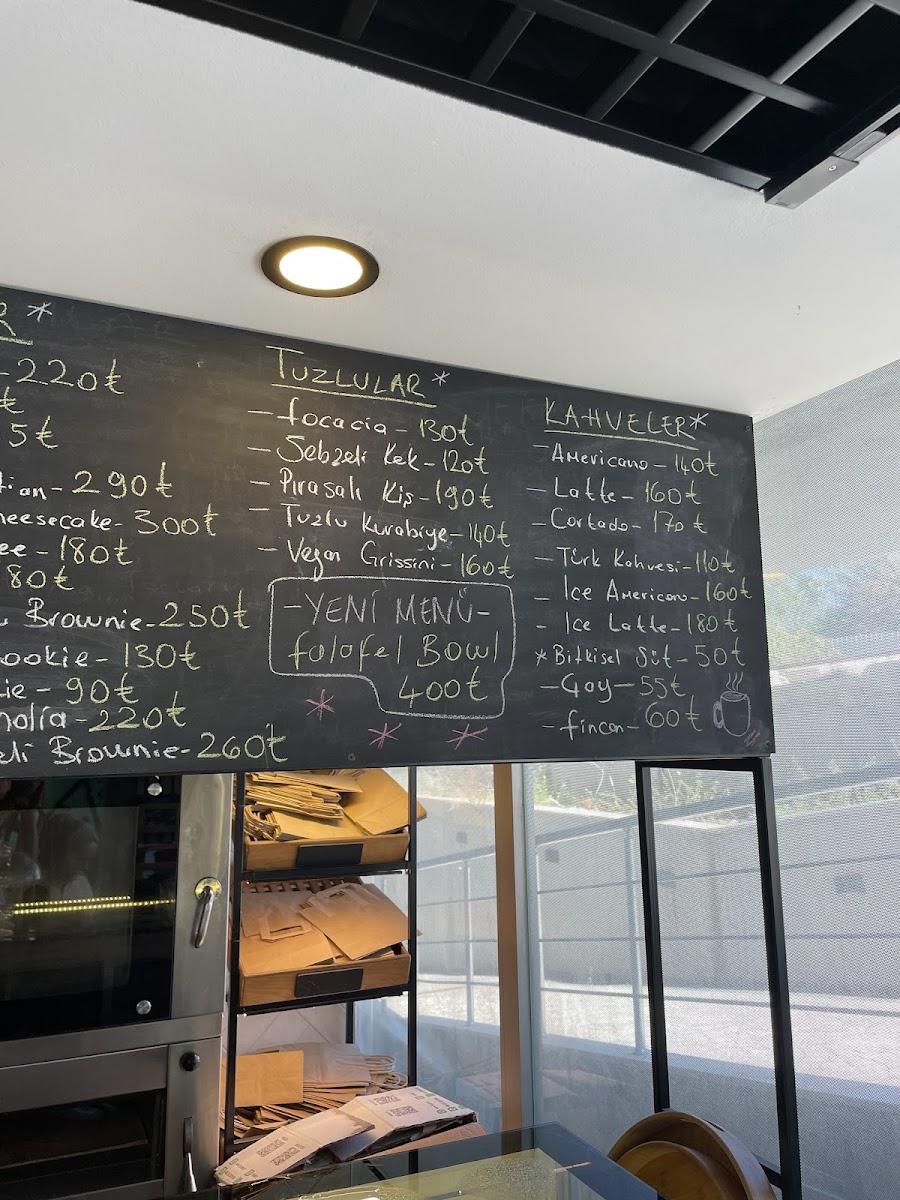 R *
-220₺
₺
5₺
tian-290₺
heesecake-300₺
ee-180₺
80₺
Brownie-250₺
ookie-130₺
ie-90₺
nolia-220₺
eli Brownie-260₺
TUZLULAR*
-focacia-130₺
-Sebzeli Kek-120₺
-Pırasalı Kiş-190₺
-Tuzlu Kurabiye-140₺
-Vegan Grissini-160₺
-YENİ MENÜ-
falafel Bowl
400₺
KAHVELER*
-Americano-140₺
-Latte-160₺
-Cortado-170₺
-Türk Kahvesi-110₺
-Ice Americano-160₺
-Ice Latte-180₺
*Bitkisel Süt-50₺
-Çay-55₺
-fincan-60₺